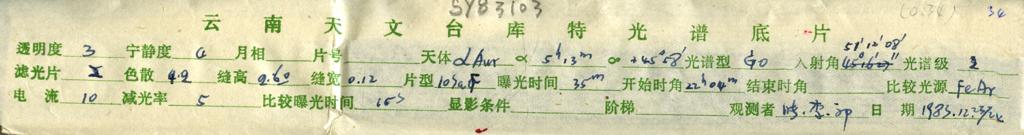 SY83103
(0.34) 34
云南天文台库特光谱底片
51°12'08"
透明度 3 宁静度 4 月相 片号 天体 αAur α 5h13m +45°58' 光谱型 G0 入射角 光谱级 2
滤光片 色散 4.2 缝高 9.60 缝宽 0.12 片型 103aF 曝光时间 35m 开始时角 22h04m 结束时角 比较光源 FeAr
电流 10 减光率 5 比较曝光时间 15s 显影条件 阶梯 观测者 李 日期 1983.12